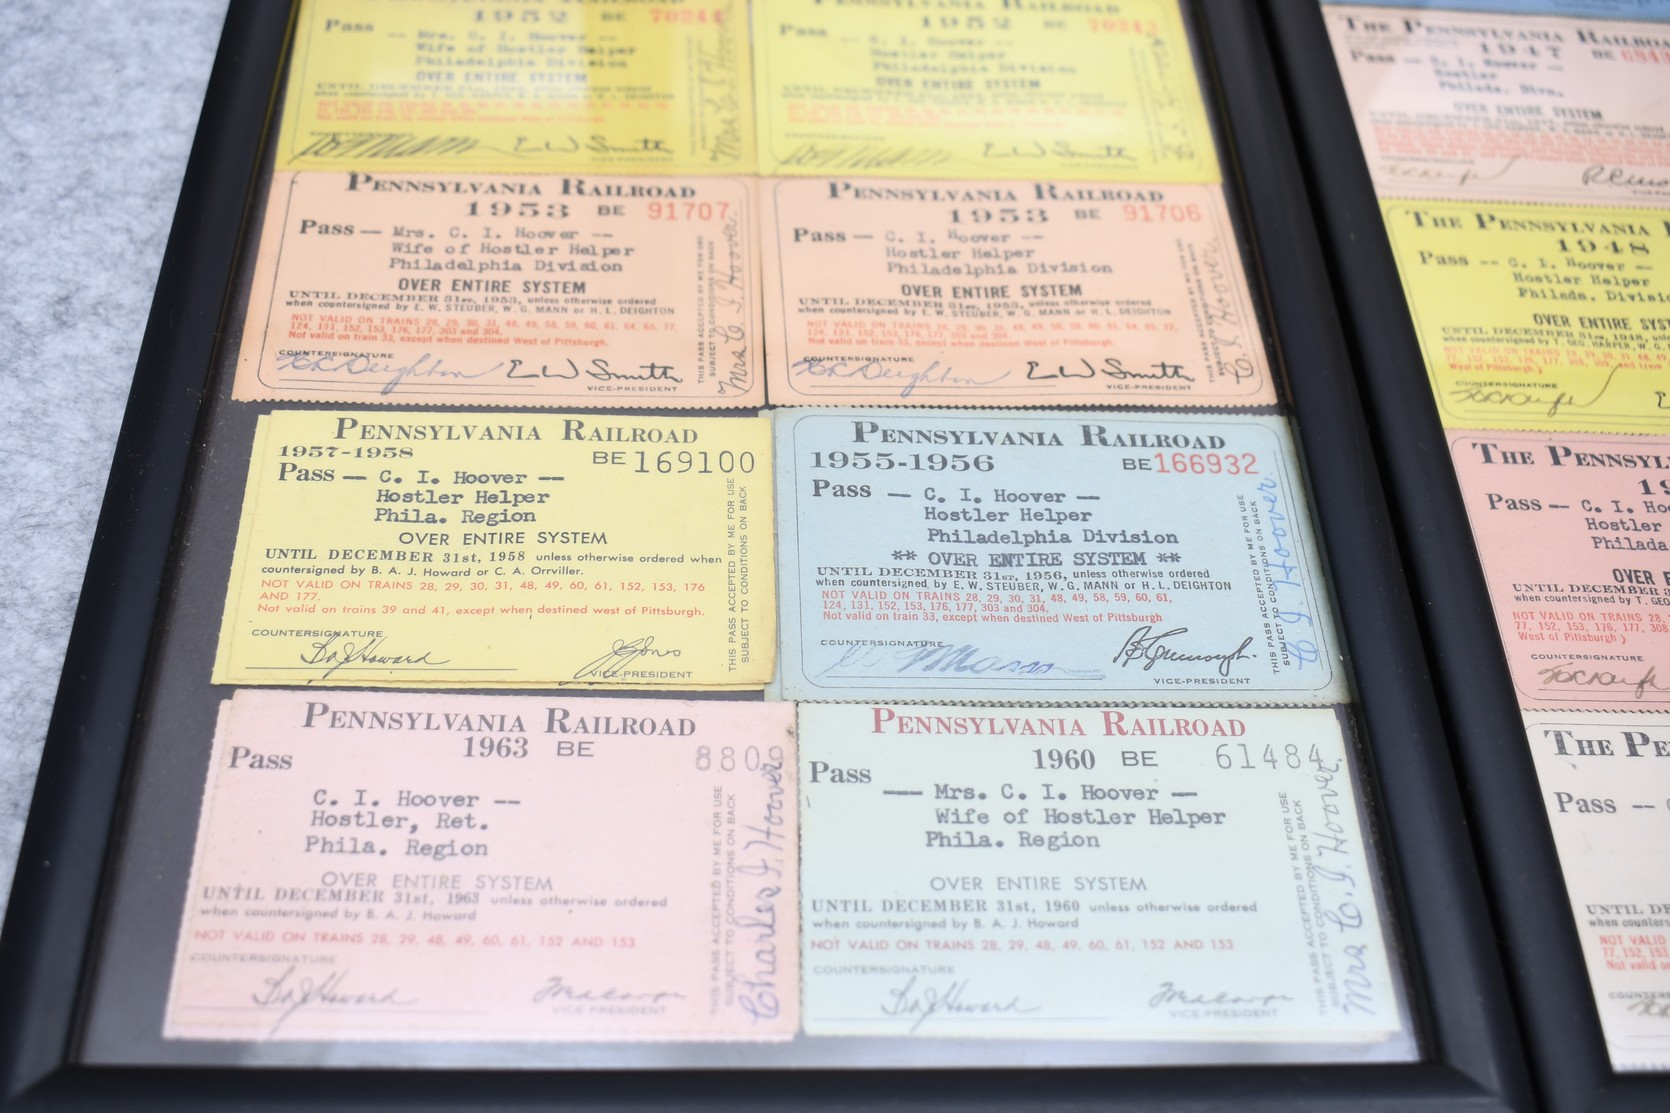 PENNSYLVANIA RAILROAD
1952 BE 70244
Pass — Mrs. C. I. Hoover —
Wife of Hostler Helper
Philadelphia Division
OVER ENTIRE SYSTEM
E W Smith
VICE-PRESIDENT
PENNSYLVANIA RAILROAD
1952 BE 70243
Pass — C. I. Hoover —
Hostler Helper
Philadelphia Division
OVER ENTIRE SYSTEM
E W Smith
PENNSYLVANIA RAILROAD
1953 BE 91707
Pass — Mrs. C. I. Hoover --
Wife of Hostler Helper
Philadelphia Division
OVER ENTIRE SYSTEM
UNTIL DECEMBER 31st, 1953, unless otherwise ordered
when countersigned by E. W. STEUBER, W. G. MANN or H. L. DEIGHTON
NOT VALID ON TRAINS 28, 29, 30, 31, 48, 49, 58, 59, 60, 61, 64, 65, 77,
124, 131, 152, 153, 176, 177, 303 and 304.
Not valid on train 33, except when destined West of Pittsburgh.
COUNTERSIGNATURE
HL Deighton
E W Smith
VICE-PRESIDENT
THIS PASS ACCEPTED BY ME FOR USE
SUBJECT TO CONDITIONS ON BACK
Mrs C I Hoover.
PENNSYLVANIA RAILROAD
1953 BE 91706
Pass — C. I. Hoover --
Hostler Helper
Philadelphia Division
OVER ENTIRE SYSTEM
UNTIL DECEMBER 31st, 1953, unless otherwise ordered
when countersigned by E. W. STEUBER, W. G. MANN or H. L. DEIGHTON
NOT VALID ON TRAINS 28, 29, 30, 31, 48, 49, 58, 59, 60, 61, 64, 65, 77,
124, 131, 152, 153, 176, 177, 303 and 304.
Not valid on train 33, except when destined West of Pittsburgh.
COUNTERSIGNATURE
HL Deighton
E W Smith
VICE-PRESIDENT
THIS PASS ACCEPTED BY ME FOR USE
SUBJECT TO CONDITIONS ON BACK
C. I. Hoover
PENNSYLVANIA RAILROAD
1957-1958
BE 169100
Pass — C. I. Hoover —
Hostler Helper
Phila. Region
OVER ENTIRE SYSTEM
UNTIL DECEMBER 31st, 1958 unless otherwise ordered when
countersigned by B. A. J. Howard or C. A. Orrviller.
NOT VALID ON TRAINS 28, 29, 30, 31, 48, 49, 60, 61, 152, 153, 176
AND 177.
Not valid on trains 39 and 41, except when destined west of Pittsburgh.
COUNTERSIGNATURE
BAJ Howard
VICE-PRESIDENT
THIS PASS ACCEPTED BY ME FOR USE
SUBJECT TO CONDITIONS ON BACK
PENNSYLVANIA RAILROAD
1955-1956
BE 166932
Pass — C. I. Hoover —
Hostler Helper
Philadelphia Division
** OVER ENTIRE SYSTEM **
UNTIL DECEMBER 31st, 1956, unless otherwise ordered
when countersigned by E. W. STEUBER, W. G. MANN or H. L. DEIGHTON
NOT VALID ON TRAINS 28, 29, 30, 31, 48, 49, 58, 59, 60, 61,
124, 131, 152, 153, 176, 177, 303 and 304.
Not valid on train 33, except when destined West of Pittsburgh
COUNTERSIGNATURE
VICE-PRESIDENT
THIS PASS ACCEPTED BY ME FOR USE
SUBJECT TO CONDITIONS ON BACK
C I Hoover
PENNSYLVANIA RAILROAD
1963 BE
Pass
C. I. Hoover --
Hostler, Ret.
Phila. Region
OVER ENTIRE SYSTEM
UNTIL DECEMBER 31st, 1963 unless otherwise ordered
when countersigned by B. A. J. Howard
NOT VALID ON TRAINS 28, 29, 48, 49, 60, 61, 152 AND 153
COUNTERSIGNATURE
BAJ Howard
VICE PRESIDENT
THIS PASS ACCEPTED BY ME FOR USE
SUBJECT TO CONDITIONS ON BACK
Charles I. Hoover
PENNSYLVANIA RAILROAD
1960 BE 61484
Pass
— Mrs. C. I. Hoover —
Wife of Hostler Helper
Phila. Region
OVER ENTIRE SYSTEM
UNTIL DECEMBER 31st, 1960 unless otherwise ordered
when countersigned by B. A. J. Howard
NOT VALID ON TRAINS 28, 29, 48, 49, 60, 61, 152 AND 153
COUNTERSIGNATURE
BAJ Howard
VICE-PRESIDENT
THIS PASS ACCEPTED BY ME FOR USE
SUBJECT TO CONDITIONS ON BACK
Mrs C. I. Hoover.
THE PENNSYLVANIA RAILROA
1947
Pass — C. I. Hoover —
Hostler
Philada. Divn.
OVER ENTIRE SYSTEM
THE PENNSYLVANIA
1948
Pass -- C. I. Hoover —
Hostler Helper
Philada. Divisio
OVER ENTIRE SYST
UNTIL DECEMBER 31st, 1948,
COUNTERSIGNATURE
THE PENNSYL
Pass — C. I. Hoo
Hostler
Philada
OVER E
UNTIL DECEMBER
when countersigned by T. GEO
NOT VALID ON TRAINS 28,
77, 152, 153, 176, 177, 308
West of Pittsburgh)
COUNTERSIGNATURE
THE PE
Pass --
UNTIL DE
when counters
NOT VALID
77, 152, 153
Not valid on